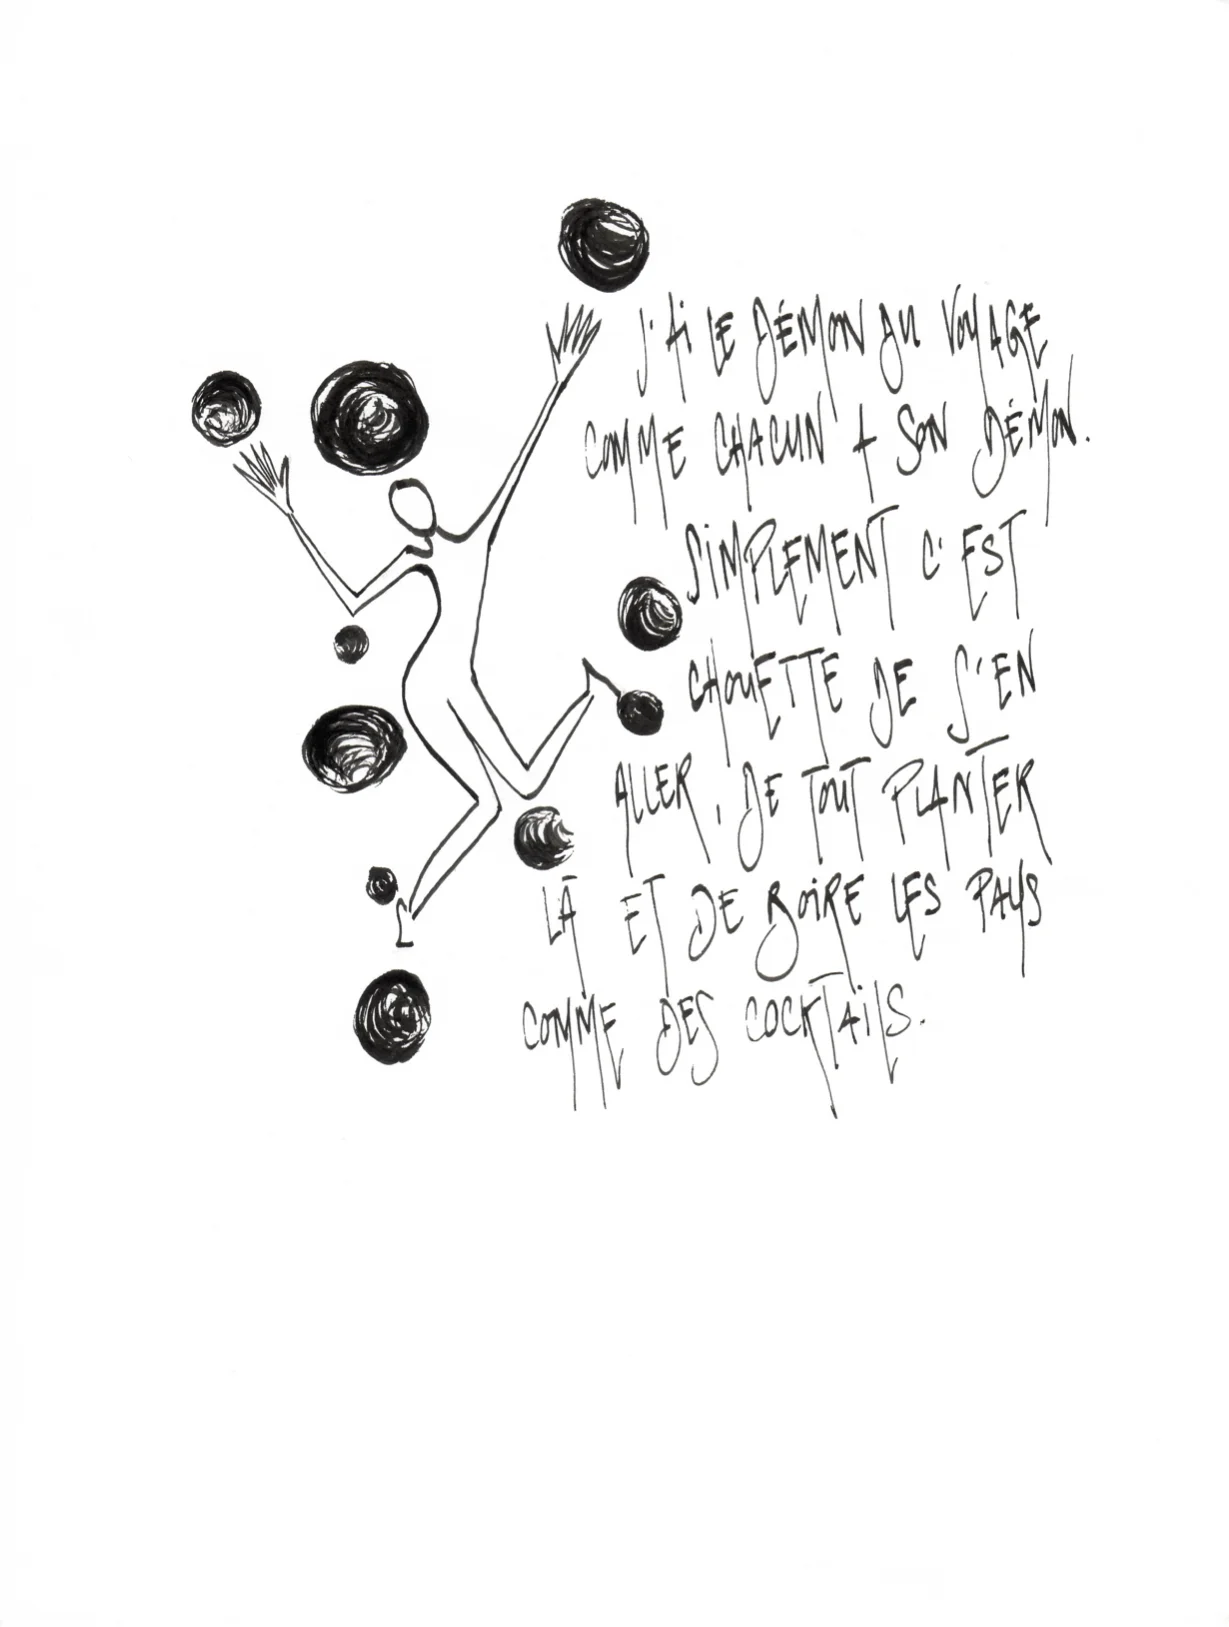 J'Ai LE DÉMON DU VOYAGE
COMME CHACUN A SON DÉMON.
SiMPLEMENT C'EST
CHOUETTE DE S'EN
ALLER, DE TOUT PLANTER
LÀ ET DE BOiRE LES PAYS
COMME DES COCKTAiLS.